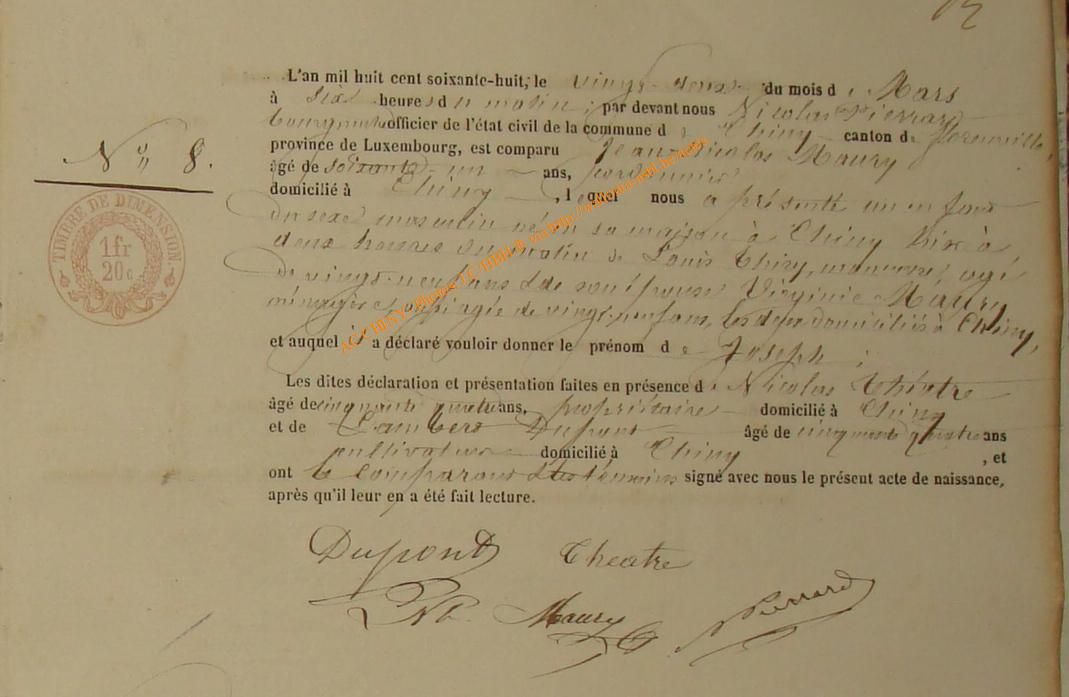 L'an mil huit cent soixante-huit, le vingt deux du mois de Mars
à six heures du matin, par devant nous Nicolas Pierrard
Bourgmestre officier de l'état civil de la commune de Chiny canton de Florenville
province de Luxembourg, est comparu Jean Nicolas Maury
N° 8.
âgé de soixante un ans, cordonnier
domicilié à Chiny, lequel nous a présenté un enfant
du sexe masculin né en sa maison à Chiny hier à
deux heures du matin de Louis Thiry, manœuvre, agé
de vingt-neuf ans & de son épouse Virginie Maury
ménagère, agée de vingt-neuf ans, les deux domiciliés à Chiny,
et auquel il a déclaré vouloir donner le prénom de Joseph ;
Les dites déclaration et présentation faites en présence de Nicolas Théatre
âgé de cinquante quatre ans, propriétaire domicilié à Chiny
et de Lambert Dupont âgé de cinquante quatre ans
cultivateur domicilié à Chiny, et
ont le comparant & les témoins signé avec nous le présent acte de naissance,
après qu'il leur en a été fait lecture.
TIMBRE DE DIMENSION
1fr
20c
Dupont Theatre
Maury Pierrard